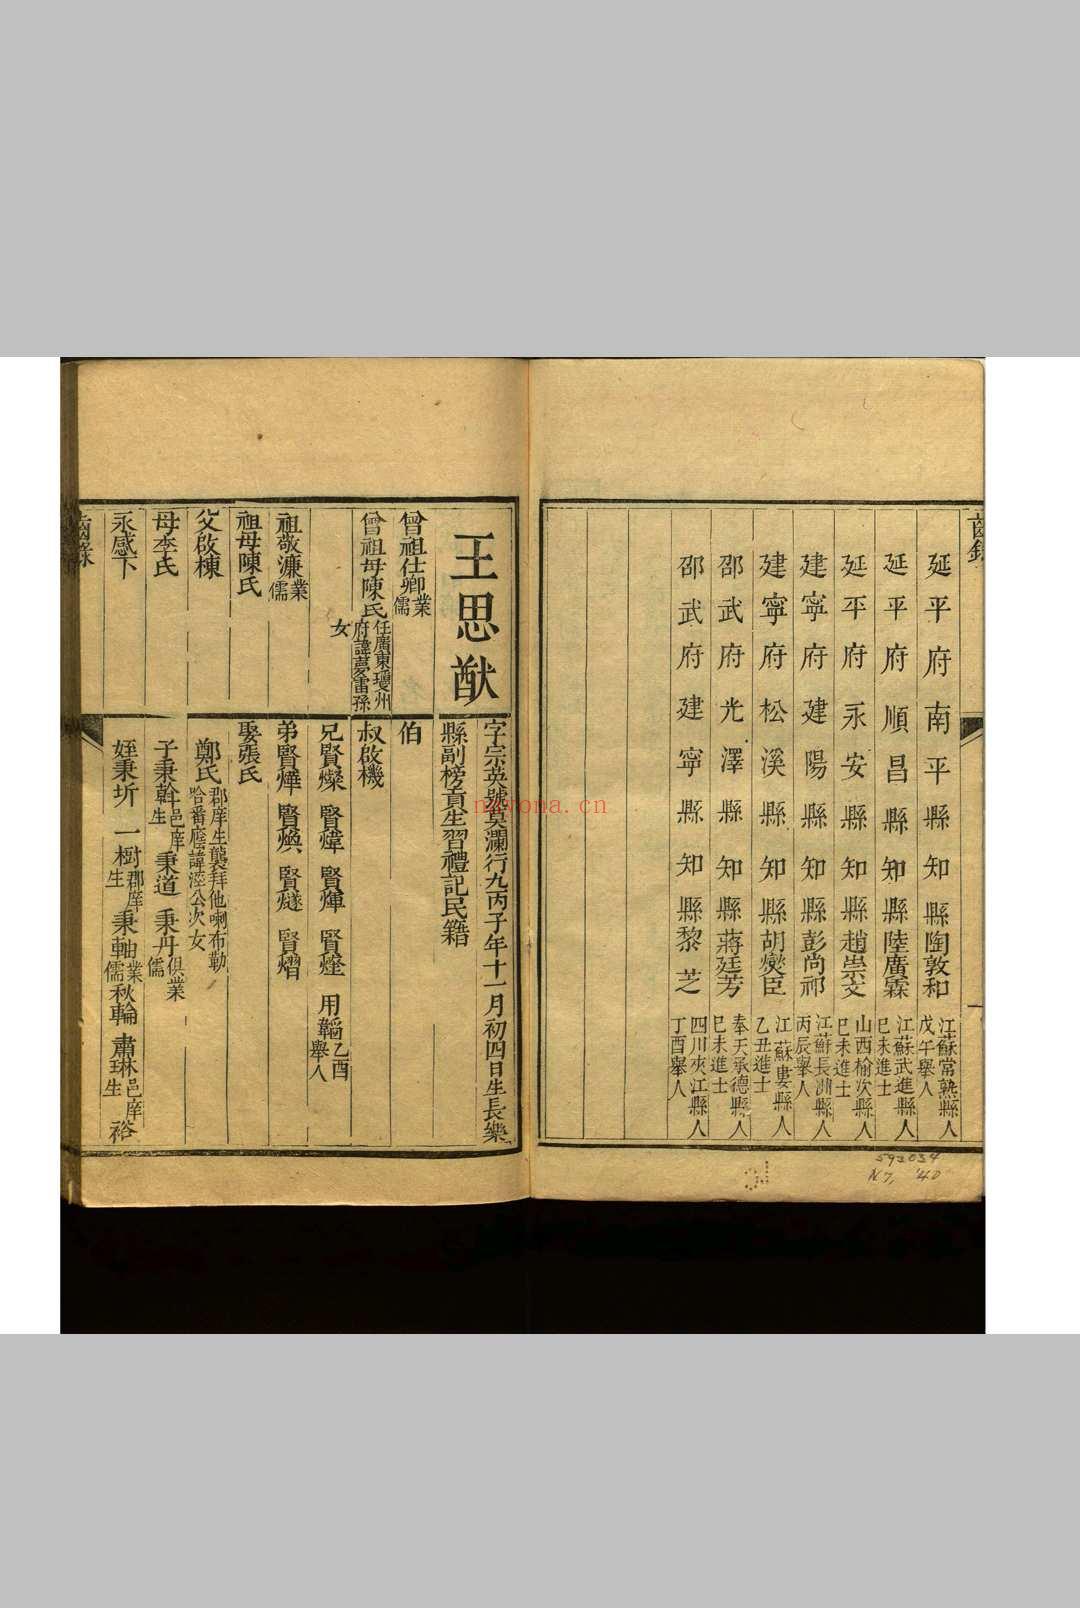 齒錄
延平府南平縣知縣陶敦和 江蘇常熟縣人 戊午舉人
延平府順昌縣知縣陸廣霖 江蘇武進縣人 己未進士
延平府永安縣知縣趙崇交 山西榆次縣人 己未進士
建寧府建陽縣知縣彭尚祁 江蘇長洲縣人 丙辰舉人
建寧府松溪縣知縣胡燮臣 江蘇婁縣人 乙丑進士
邵武府光澤縣知縣蔣廷芳 奉天承德縣人 己未進士
邵武府建寧縣知縣黎芝 四川夾江縣人 丁酉舉人
593034
N7, '40
王思猷
字宗英號莫瀾行九丙子年十一月初四日生長樂
縣副榜貢生習禮記民籍
曾祖仕卿 業儒
曾祖母陳氏 任廣東瓊州府諱夢雷孫女
祖敬濂 業儒
祖母陳氏
父啟棟
母李氏
永感下
伯
叔啟機
兄賢燦 賢煒 賢煇 賢燈 用韜 乙酉舉人
弟賢燁 賢煥 賢燧 賢熠
娶張氏
鄭氏 郡庠生襲拜他喇布勒哈番廕諱溼公次女
子秉斡 邑庠生 秉道 秉丹 俱業儒
姪秉圻 一樹 郡庠生 秉軸 業儒 秋輪 肅琳 邑庠生 裕
齒錄
navona.cn